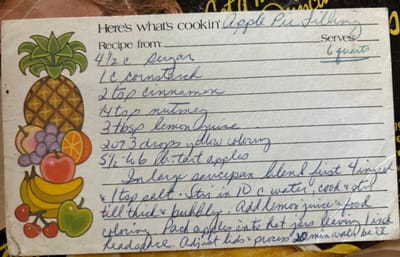 Here's what's cookin' Apple Pie Filling
Recipe from: Serves: 6 quarts
4 1/2 c sugar
1 c cornstarch
2 tsp cinnamon
1/4 tsp nutmeg
3 tbsp lemon juice
2 or 3 drops yellow coloring
5 1/2 - 6 lb tart apples
In large saucepan blend first 4 ingred
+ 1 tsp salt. Stir in 10 c water, cook + stir
till thick + bubbly. Add lemon juice + food
coloring. Pack apples into hot jars leaving 1 inch
headspace. Adjust lids + process 20 min water